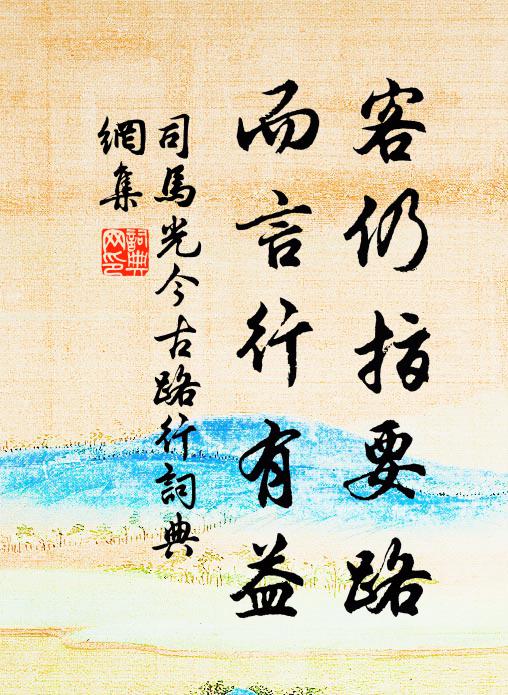 客仍指要路
而言行有益
司馬光今古路行詞典
網集
詞典
网印